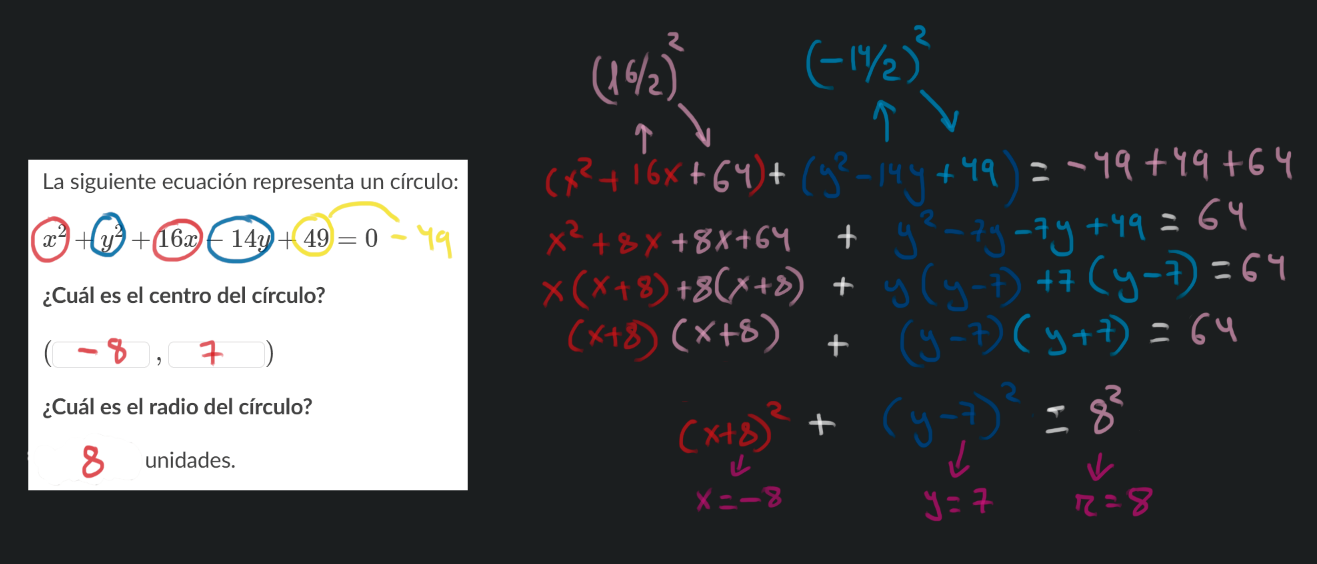 La siguiente ecuación representa un círculo:
x² + y² + 16x − 14y + 49 = 0 − 49
¿Cuál es el centro del círculo?
( −8 , 7 )
¿Cuál es el radio del círculo?
8 unidades.
(16/2)² (−14/2)²
(x² + 16x + 64) + (y² − 14y + 49) = −49 + 49 + 64
x² + 8x + 8x + 64 + y² − 7y − 7y + 49 = 64
x(x+8) + 8(x+8) + y(y−7) + 7(y−7) = 64
(x+8)(x+8) + (y−7)(y+7) = 64
(x+8)² + (y−7)² = 8²
x = −8 y = 7 r = 8